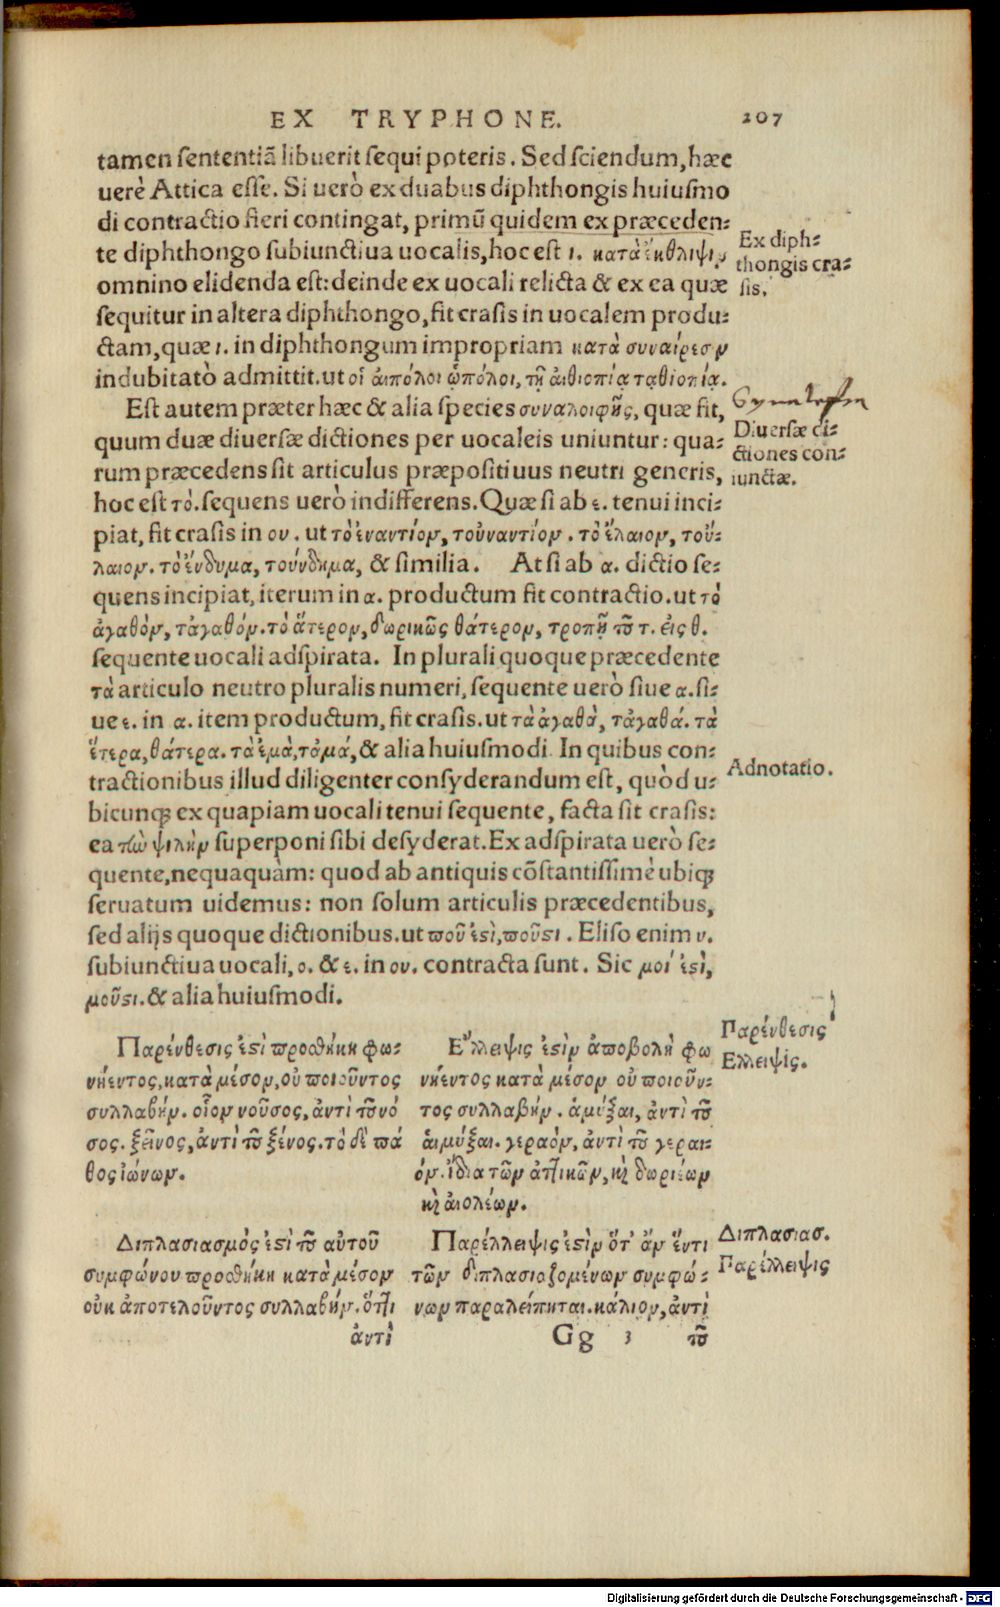 EX TRYPHONE. 207
tamen sententiã libuerit sequi poteris. Sed sciendum, hæc
uerè Attica esse. Si uerò ex duabus diphthongis huiusmo
di contractio fieri contingat, primũ quidem ex præceden:
te diphthongo subiunctiua uocalis, hoc est ι. κατὰ ἔκθλιψιν
omnino elidenda est: deinde ex uocali relicta & ex ea quæ
sequitur in altera diphthongo, fit crasis in uocalem produ:
ctam, quæ ι. in diphthongum impropriam κατὰ συναίρεσιν
indubitatò admittit. ut οἱ αἰπόλοι ᾡπόλοι, τῇ αἰθιοπίᾳ ταθιοπίᾳ.
Ex diph:
thongis cra:
sis.
Est autem præter hæc & alia species συναλοιφῆς, quæ fit,
quum duæ diuersæ dictiones per uocaleis uniuntur: qua:
rum præcedens sit articulus præpositiuus neutri generis,
hoc est τό. sequens uerò indifferens. Quæ si ab ε. tenui inci:
piat, fit crasis in ου. ut τὸ ἐναντίον, τοὐναντίον. τὸ ἔλαιον, τοὔ:
λαιον. τὸ ἔνδυμα, τούνδυμα, & similia. At si ab α. dictio se:
quens incipiat, iterum in α. productum fit contractio. ut τὸ
ἀγαθὸν, τἀγαθόν. τὸ ἅτερον, δωρικῶς θάτερον, τροπῇ τοῦ τ. εἰς θ.
sequente uocali adspirata. In plurali quoque præcedente
τὰ articulo neutro pluralis numeri, sequente uerò siue α. si:
ue ε. in α. item productum, fit crasis. ut τὰ ἀγαθὰ, τἀγαθά. τὰ
ἕτερα, θάτερα. τὰ ἐμὰ, τἀμά, & alia huiusmodi. In quibus con:
tractionibus illud diligenter consyderandum est, quòd u:
bicunq; ex quapiam uocali tenui sequente, facta sit crasis:
ea τὼ ψιλὴν superponi sibi desyderat. Ex adspirata uerò se:
quente, nequaquàm: quod ab antiquis cõstantissimè ubiq;
seruatum uidemus: non solum articulis præcedentibus,
sed alijs quoque dictionibus. ut ποῦ ἐστὶ, ποῦστι. Eliso enim υ.
subiunctiua uocali, ο. & ε. in ου. contracta sunt. Sic μοί ἐστὶ,
μοῦστι. & alia huiusmodi.
Diuersæ di:
ctiones con:
iunctæ.
Adnotatio.
Παρένθεσις ἐστὶ προσθήκη φω:
νήεντος, κατὰ μέσον, οὐ ποιοῦντος
συλλαβήν. οἷον νοῦσος, ἀντὶ τοῦ νό
σος. ξεῖνος, ἀντὶ τοῦ ξένος. τὸ δὲ πά
θος ἰώνων.
Ἔλλειψις ἐστὶν ἀποβολὴ φω
νήεντος κατὰ μέσον οὐ ποιοῦν:
τος συλλαβήν. ἀμύξαι, ἀντὶ τοῦ
αἱμύξαι. γεραὸν, ἀντὶ τοῦ γεραι:
όν. ἴδια τῶν ἀττικῶν, καὶ δωριέων
καὶ αἰολέων.
Παρένθεσις
Ελλειψις.
Διπλασιασμὸς ἐστὶ τοῦ αὐτοῦ
συμφώνου προσθήκη κατὰ μέσον
οὐκ ἀποτελοῦντος συλλαβήν. ὅττι
ἀντὶ
Παρέλλειψις ἐστὶν ὅτ' ἂν ἕν τι
τῶν διπλασιαζομένων συμφώ:
νων παραλείπηται. κάλιον, ἀντὶ
Gg 3 τοῦ
Διπλασιας.
Παρέλλειψις
Digitalisierung gefördert durch die Deutsche Forschungsgemeinschaft - DFG